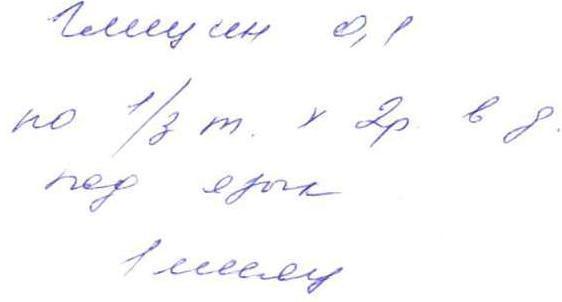 Глицин 0,1
по 1/3 т. х 2р. в д.
под язык
1 месяц